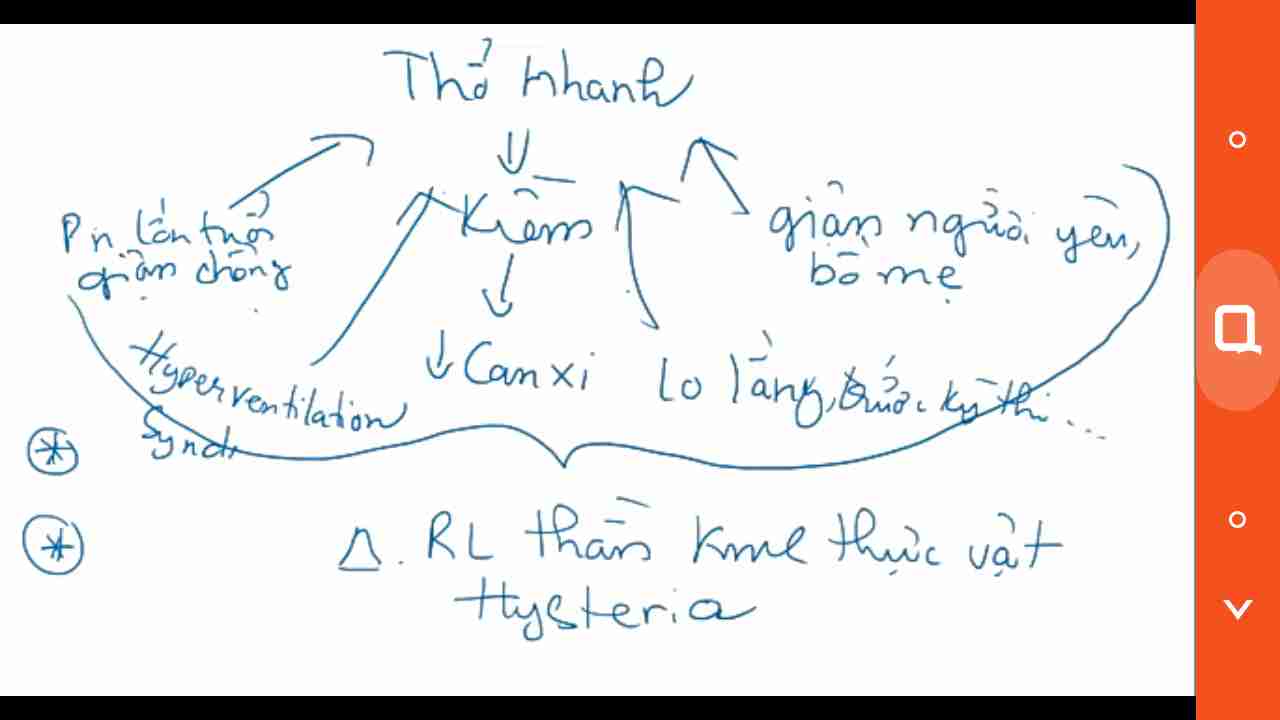 Thở nhanh
↓
Kiềm
↓
↓ Canxi
Pn lớn tuổi
giận chồng
Hyperventilation
Syndr
giận người yêu,
bố mẹ
lo lắng, trước kỳ thi...
Δ. RL thần kinh thực vật
Hysteria